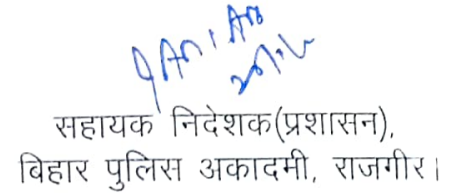 सहायक निदेशक(प्रशासन),
बिहार पुलिस अकादमी, राजगीर।